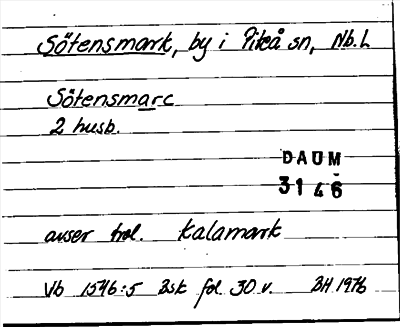 Sötensmark, by i Piteå sn, Nb.L
Sötensmarc
2 husb.
DAUM
3146
avser trol. Kalamark
Vb 1546:5 Bsk fol. 30 v. BH 1976